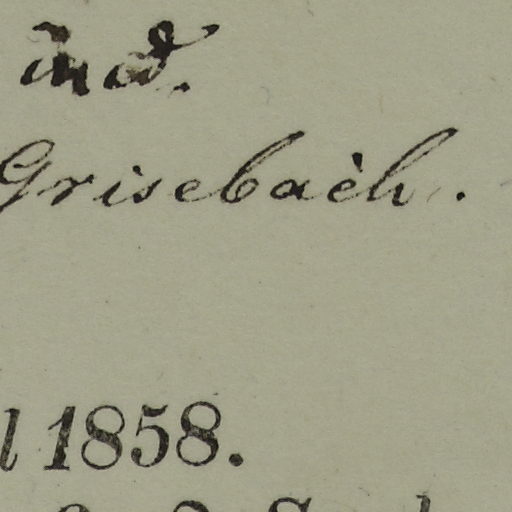 ind.
Grisebach.
l 1858.